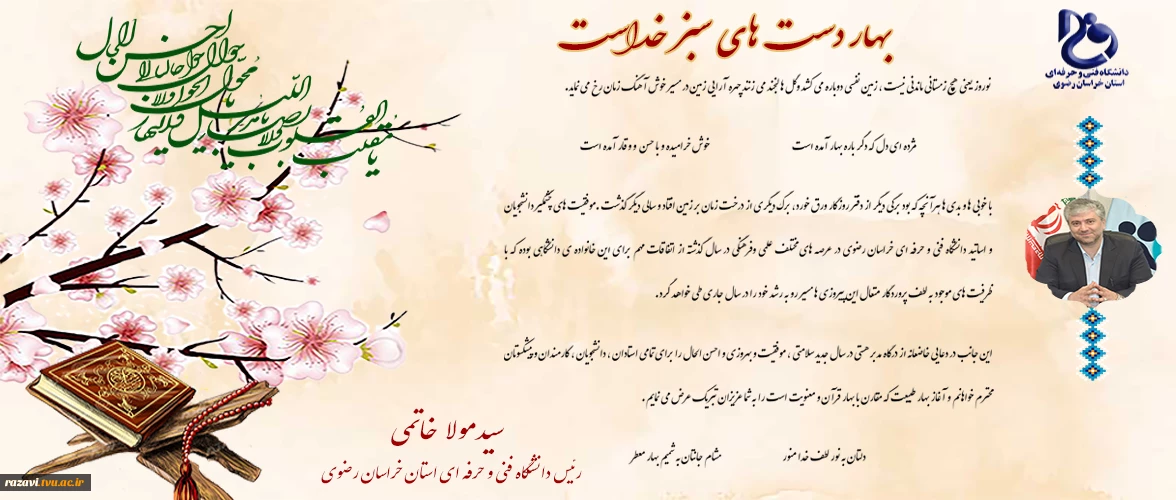 بهار دست های سبز خداست
دانشگاه فنی و حرفه‌ای
استان خراسان رضوی
نوروز یعنی هیچ زمستانی ماندنی نیست ، زمین نفسی دوباره می کشد و گل ها لبخند می زنند چهره آرایی زمین در مسیر خوش آهنگ زمان رخ می نماید.
مژده ای دل که دگر باره بهار آمده است خوش خرامیده و با حسن و وقار آمده است
با خوبی ها و بدی ها هر آنچه که بود برگی دیگر از دفتر روزگار ورق خورد، برگ دیگری از درخت زمان بر زمین افتاد و سالی دیگر گذشت .موفقیت های چشمگیر دانشجویان
و اساتید دانشگاه فنی و حرفه ای خراسان رضوی در عرصه های مختلف علمی و فرهنگی در سال گذشته از اتفاقات مهم برای این خانواده ی دانشگاهی بوده که با
ظرفیت های موجود به لطف پروردگار متعال این پیروزی ها مسیر رو به رشد خود را در سال جاری طی خواهد کرد.
این جانب در دعایی خاضعانه از درگاه مدبر هستی در سال جدید سلامتی ، موفقیت و بهروزی و احسن الحال را برای تمامی استادان ، دانشجویان ، کارمندان و پیشکسوتان
محترم خواهانم و آغاز بهار طبیعت که مقارن با بهار قرآن و معنویت است را به شما عزیزان تبریک عرض می نمایم .
دلتان به نور لطف خدا منور مشام جانتان به شمیم بهار معطر
سید مولا خاتمی
رئیس دانشگاه فنی و حرفه ای استان خراسان رضوی
یا مقلب القلوب و الابصار
یا مدبر اللیل و النهار
یا محول الحول و الاحوال
حول حالنا الی احسن الحال
razavi.tvu.ac.ir